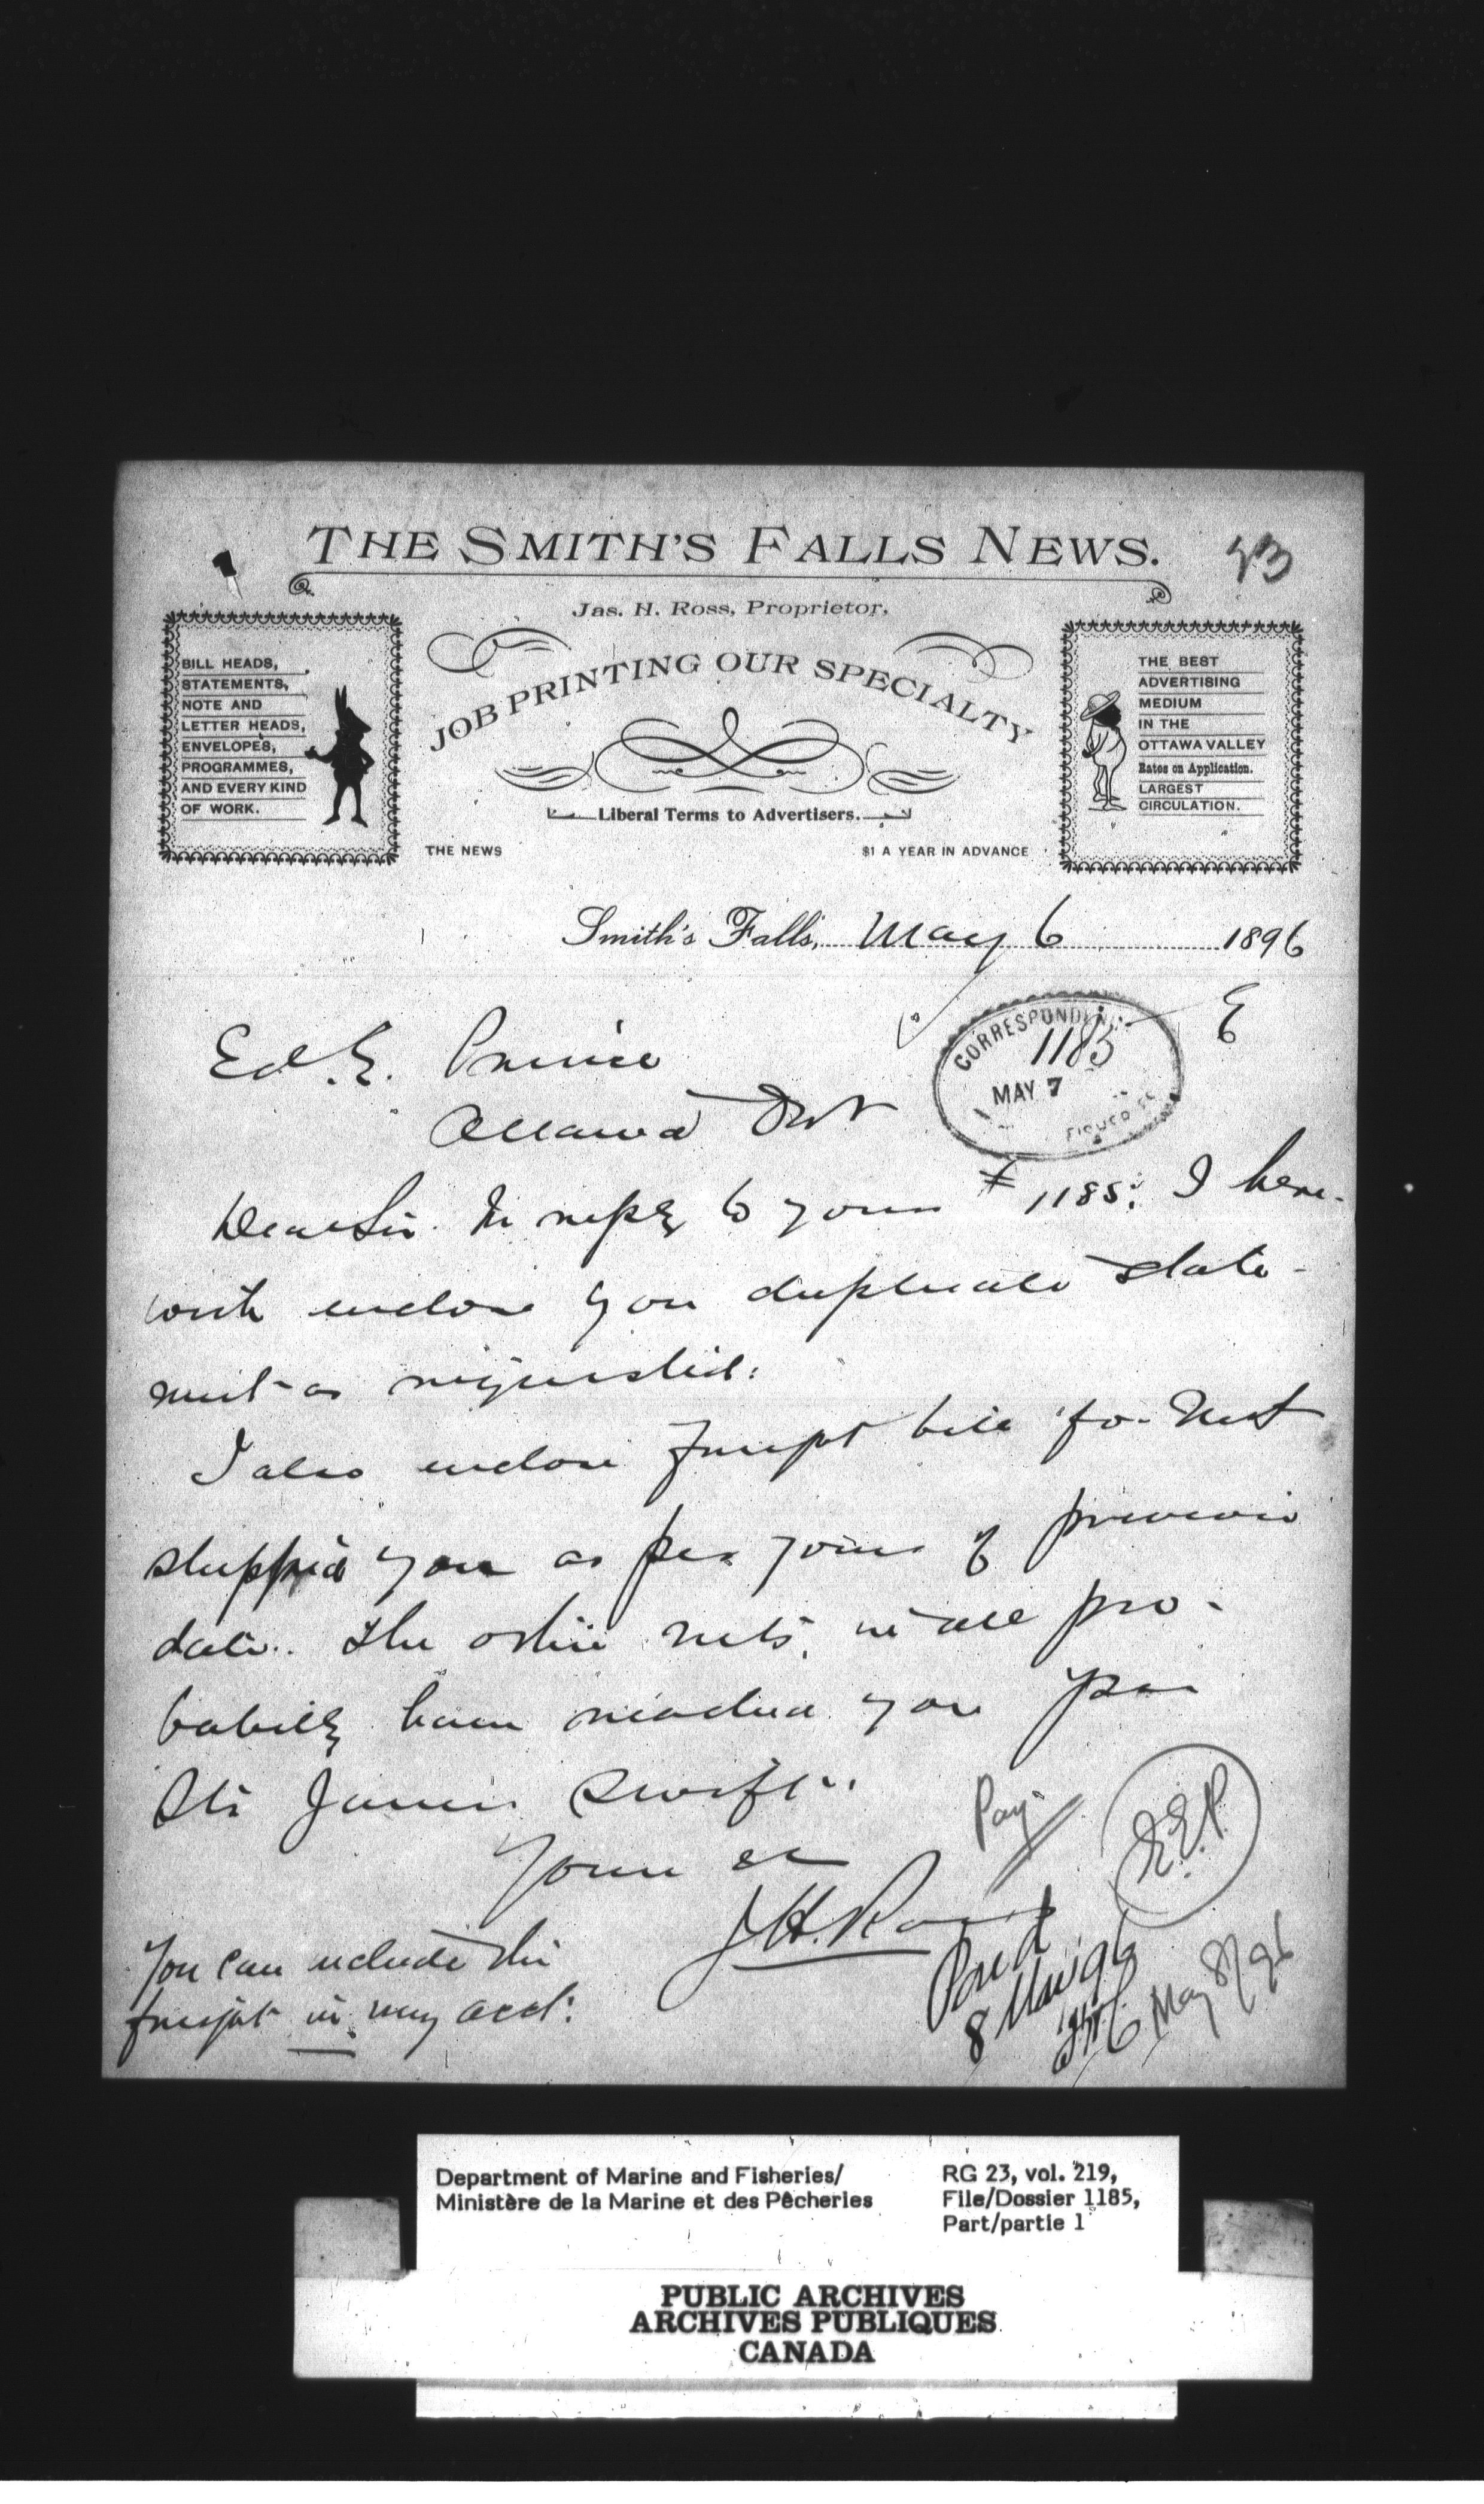 THE SMITH'S FALLS NEWS.
23
Jas. H. Ross, Proprietor.
JOB PRINTING OUR SPECIALTY
Liberal Terms to Advertisers.
BILL HEADS,
STATEMENTS,
NOTE AND
LETTER HEADS,
ENVELOPES,
PROGRAMMES,
AND EVERY KIND
OF WORK.
THE BEST
ADVERTISING
MEDIUM
IN THE
OTTAWA VALLEY
Rates on Application.
LARGEST
CIRCULATION.
THE NEWS $1 A YEAR IN ADVANCE
Smith's Falls, May 6 1896
E
CORRESPONDENCE
1185
MAY 7
Ed. E. Prince
Ottawa Ont
Dear Sir. In reply to yours # 1185: I here-
with enclose you duplicate state-
ment as requested:
I also enclose freight bill for Net
shipped you as per yours of previous
date. The other nets, in all pro-
babily have reached you per
Str James Swift.
Yours &c
J.H. Ross
Pay
E.E.P.
May 8/96
Paid
8 Mai 96
You can include the
freight in my acct:
Department of Marine and Fisheries/
Ministère de la Marine et des Pêcheries
RG 23, vol. 219,
File/Dossier 1185,
Part/partie 1
PUBLIC ARCHIVES
ARCHIVES PUBLIQUES
CANADA